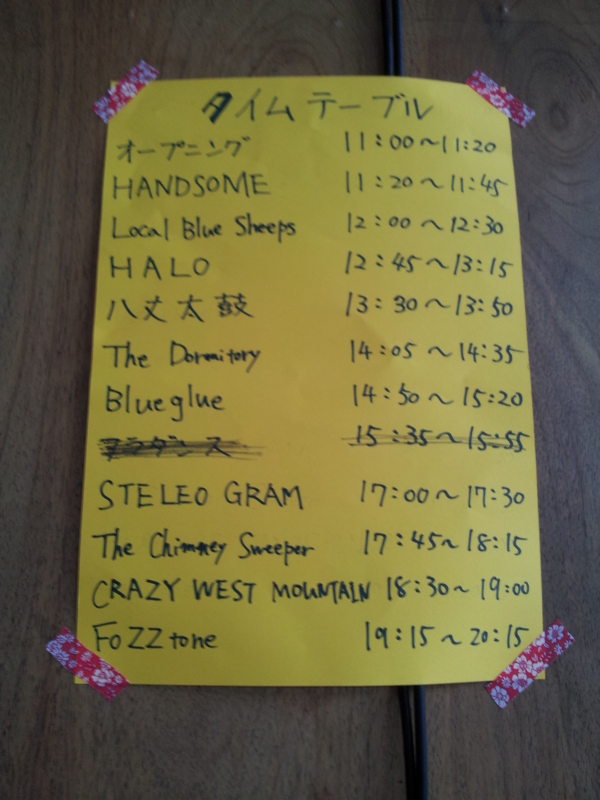 タイムテーブル
オープニング 11:00〜11:20
HANDSOME 11:20〜11:45
Local Blue Sheeps 12:00〜12:30
HALO 12:45〜13:15
八丈太鼓 13:30〜13:50
The Dormitory 14:05〜14:35
Blueglue 14:50〜15:20
フラダンス 15:35〜15:55
STELEO GRAM 17:00〜17:30
The Chimney Sweeper 17:45〜18:15
CRAZY WEST MOUNTAIN 18:30〜19:00
FoZZtone 19:15〜20:15